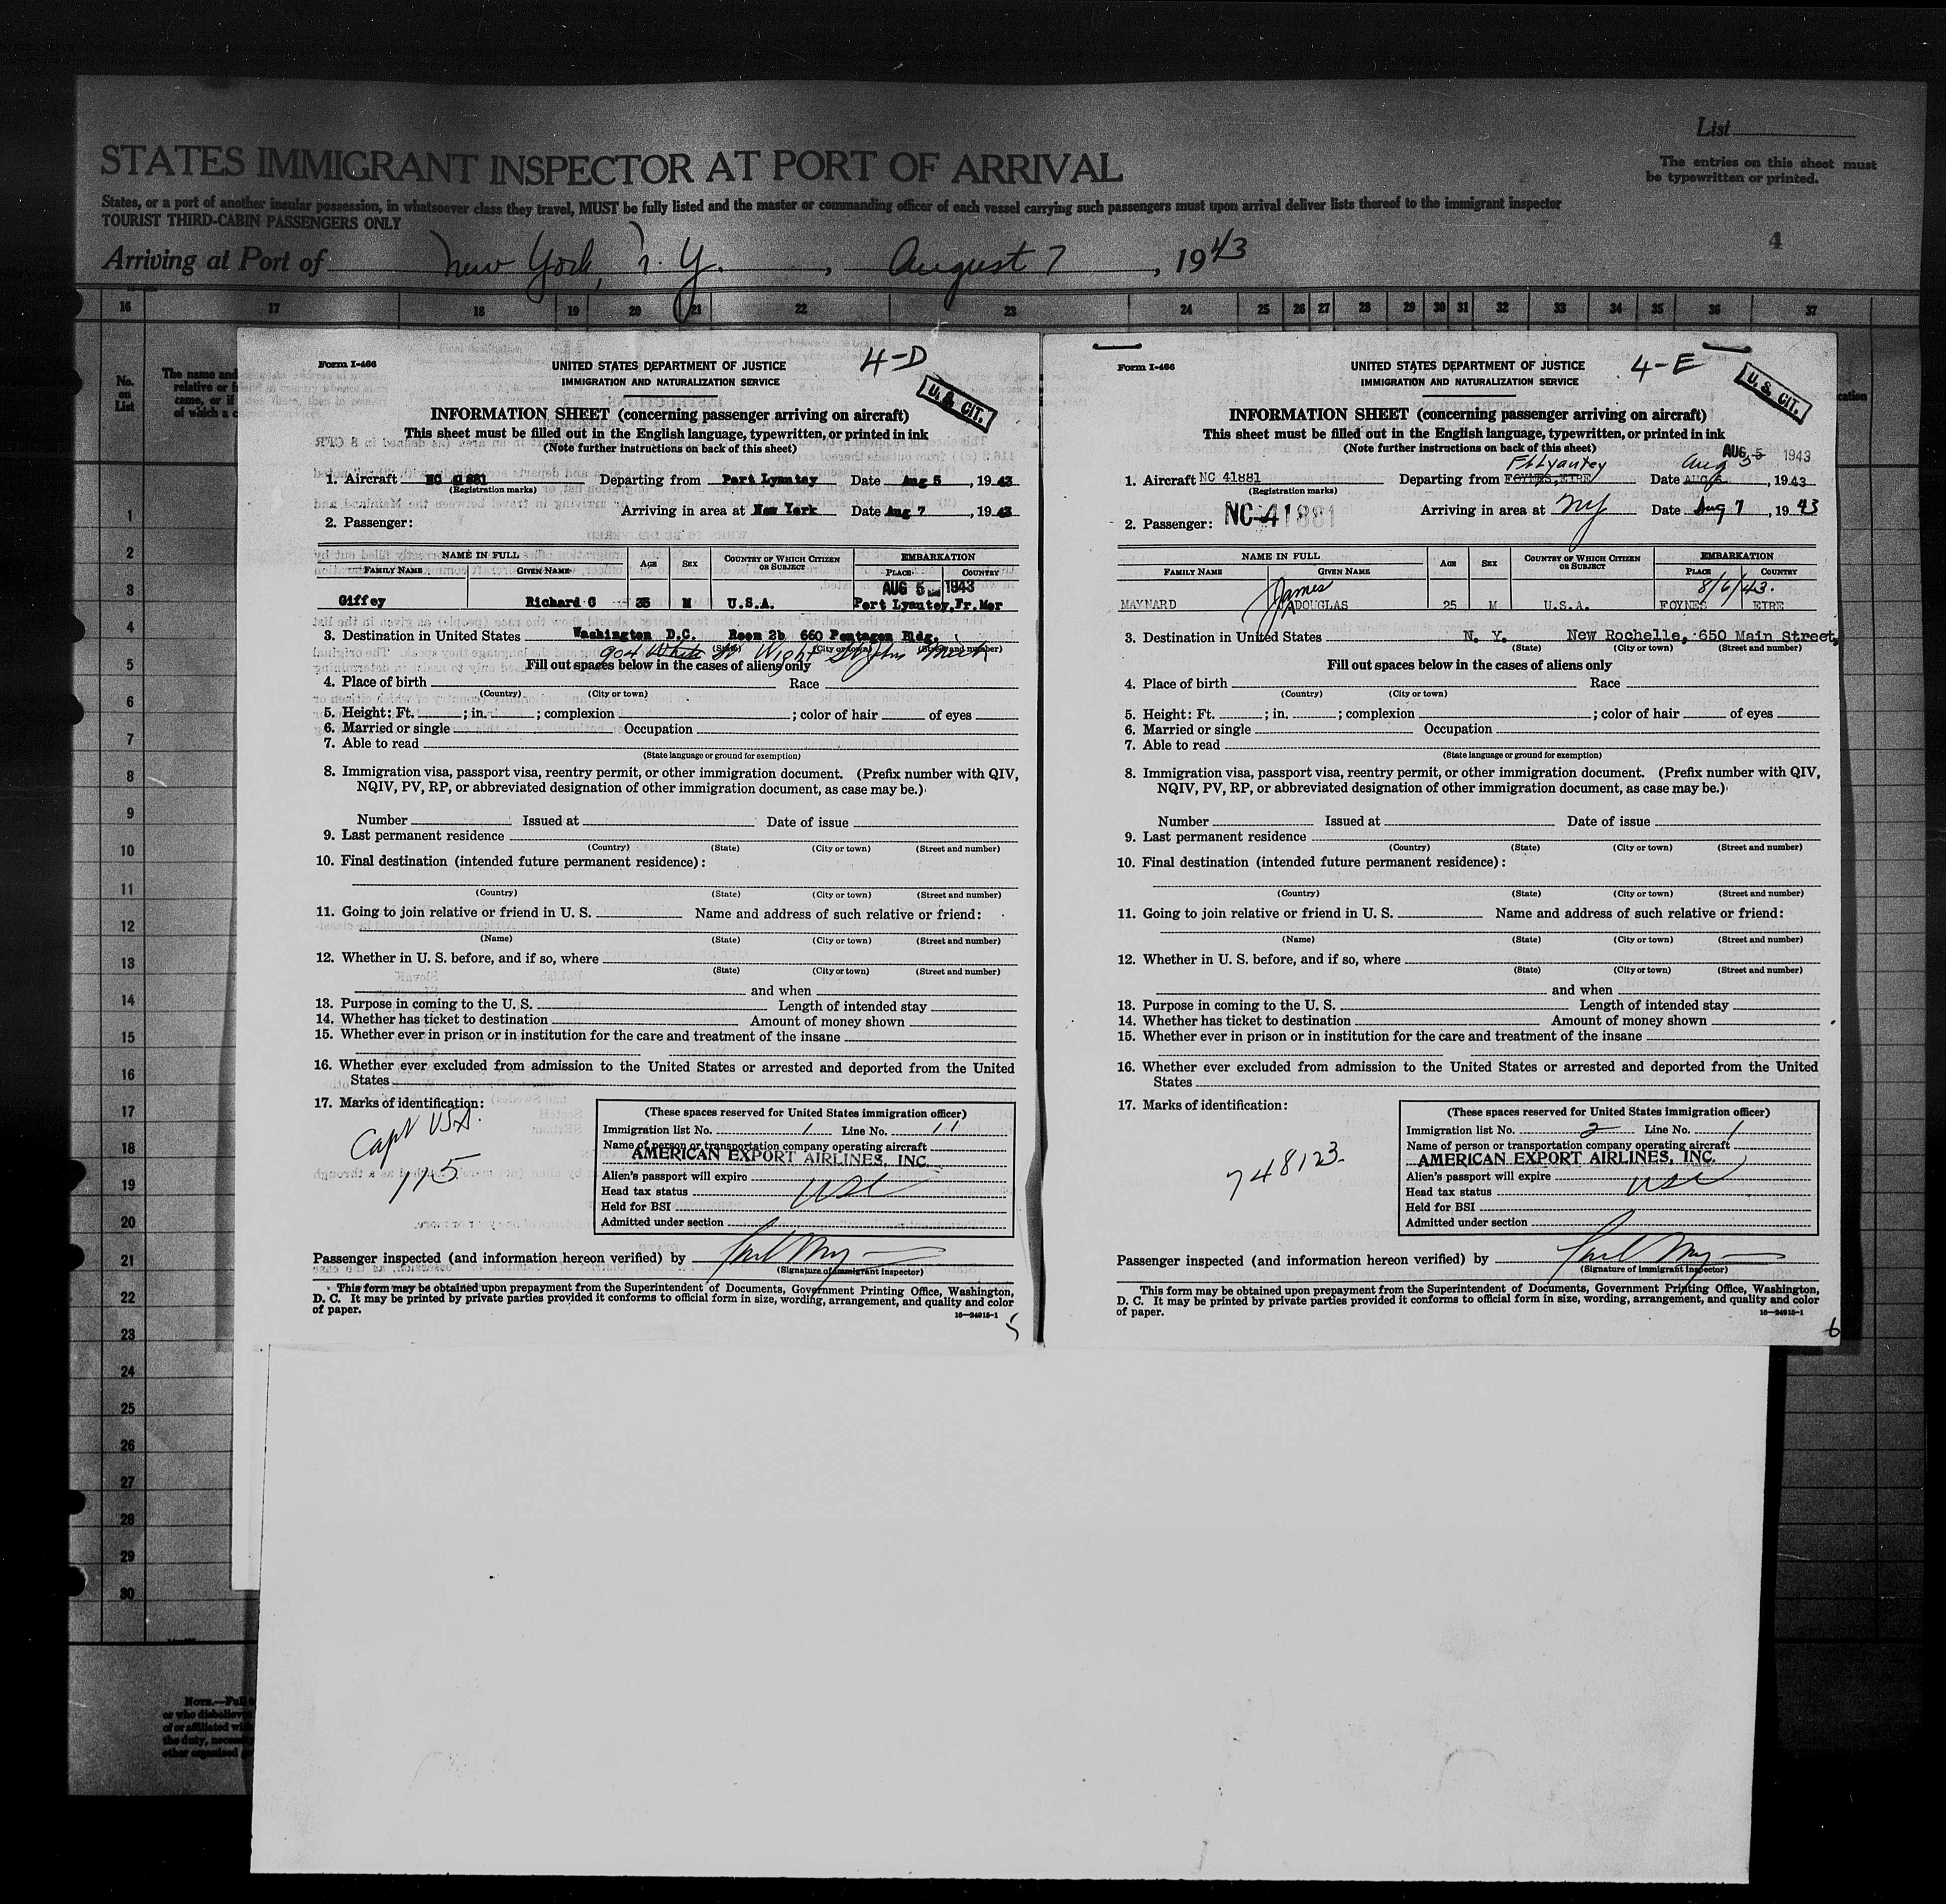 List
STATES IMMIGRANT INSPECTOR AT PORT OF ARRIVAL
The entries on this sheet must
be typewritten or printed.
States, or a port of another insular possession, in whatsoever class they travel, MUST be fully listed and the master or commanding officer of each vessel carrying such passengers must upon arrival deliver lists thereof to the immigrant inspector
TOURIST THIRD-CABIN PASSENGERS ONLY
4
Arriving at Port of New York, N. Y. , August 7 , 1943
16 17 18 19 20 21 22 23 24 25 26 27 28 29 30 31 32 33 34 35 36 37
No.
on
List
The name and
relative or f
came, or if
of which a c
1
2
3
4
5
6
7
8
9
10
11
12
13
14
15
16
17
18
19
20
21
22
23
24
25
26
27
28
29
30
NOTE.—Full
or who disbeliev
of or affiliated wi
the duty, neces
other organized
Form I-466
4-D
UNITED STATES DEPARTMENT OF JUSTICE
IMMIGRATION AND NATURALIZATION SERVICE
U. S. CIT.
INFORMATION SHEET (concerning passenger arriving on aircraft)
This sheet must be filled out in the English language, typewritten, or printed in ink
(Note further instructions on back of this sheet)
1. Aircraft NC 41881 Departing from Port Lyautey Date Aug 5, 1943
(Registration marks)
Arriving in area at New York Date Aug 7, 1943
2. Passenger:
NAME IN FULL AGE SEX COUNTRY OF WHICH CITIZEN OR SUBJECT EMBARKATION
FAMILY NAME GIVEN NAME PLACE COUNTRY
AUG 5 1943
Giffey Richard G 35 M U.S.A. Port Lyautey, Fr. Mor
3. Destination in United States Washington D.C. Room 2b 660 Pentagon Bldg.
(State) (City or town) (Street and number)
904 White St Wight St Johns Mich
Fill out spaces below in the cases of aliens only
4. Place of birth Race
(Country) (City or town)
5. Height: Ft. ; in. ; complexion ; color of hair of eyes
6. Married or single Occupation
7. Able to read
(State language or ground for exemption)
8. Immigration visa, passport visa, reentry permit, or other immigration document. (Prefix number with QIV,
NQIV, PV, RP, or abbreviated designation of other immigration document, as case may be.)
Number Issued at Date of issue
9. Last permanent residence
(Country) (State) (City or town) (Street and number)
10. Final destination (intended future permanent residence):
(Country) (State) (City or town) (Street and number)
11. Going to join relative or friend in U. S. Name and address of such relative or friend:
(Name) (State) (City or town) (Street and number)
12. Whether in U. S. before, and if so, where
(State) (City or town) (Street and number)
and when
13. Purpose in coming to the U. S. Length of intended stay
14. Whether has ticket to destination Amount of money shown
15. Whether ever in prison or in institution for the care and treatment of the insane
16. Whether ever excluded from admission to the United States or arrested and deported from the United
States
17. Marks of identification:
Capt USA.
115
(These spaces reserved for United States immigration officer)
Immigration list No. 1 Line No. 11
Name of person or transportation company operating aircraft
AMERICAN EXPORT AIRLINES, INC.
Alien's passport will expire
Head tax status USC
Held for BSI
Admitted under section
Passenger inspected (and information hereon verified) by
(Signature of immigrant inspector)
This form may be obtained upon prepayment from the Superintendent of Documents, Government Printing Office, Washington,
D. C. It may be printed by private parties provided it conforms to official form in size, wording, arrangement, and quality and color
of paper.
16—24915-1
5
Form I-466
4-E
UNITED STATES DEPARTMENT OF JUSTICE
IMMIGRATION AND NATURALIZATION SERVICE
U. S. CIT.
INFORMATION SHEET (concerning passenger arriving on aircraft)
This sheet must be filled out in the English language, typewritten, or printed in ink
(Note further instructions on back of this sheet)
AUG 5 1943
Ft Lyautey Aug 5
1. Aircraft NC 41881 Departing from FOYNES, EIRE Date AUG 6, 1943
(Registration marks)
NC-41881
Arriving in area at NY Date Aug 7, 1943
2. Passenger:
NAME IN FULL AGE SEX COUNTRY OF WHICH CITIZEN OR SUBJECT EMBARKATION
FAMILY NAME GIVEN NAME PLACE COUNTRY
James 8/6/43.
MAYNARD DOUGLAS 25 M U.S.A. FOYNES EIRE
3. Destination in United States N. Y. New Rochelle, 650 Main Street,
(State) (City or town) (Street and number)
Fill out spaces below in the cases of aliens only
4. Place of birth Race
(Country) (City or town)
5. Height: Ft. ; in. ; complexion ; color of hair of eyes
6. Married or single Occupation
7. Able to read
(State language or ground for exemption)
8. Immigration visa, passport visa, reentry permit, or other immigration document. (Prefix number with QIV,
NQIV, PV, RP, or abbreviated designation of other immigration document, as case may be.)
Number Issued at Date of issue
9. Last permanent residence
(Country) (State) (City or town) (Street and number)
10. Final destination (intended future permanent residence):
(Country) (State) (City or town) (Street and number)
11. Going to join relative or friend in U. S. Name and address of such relative or friend:
(Name) (State) (City or town) (Street and number)
12. Whether in U. S. before, and if so, where
(State) (City or town) (Street and number)
and when
13. Purpose in coming to the U. S. Length of intended stay
14. Whether has ticket to destination Amount of money shown
15. Whether ever in prison or in institution for the care and treatment of the insane
16. Whether ever excluded from admission to the United States or arrested and deported from the United
States
17. Marks of identification:
748123.
(These spaces reserved for United States immigration officer)
Immigration list No. 2 Line No. 1
Name of person or transportation company operating aircraft
AMERICAN EXPORT AIRLINES, INC.
Alien's passport will expire
Head tax status USC
Held for BSI
Admitted under section
Passenger inspected (and information hereon verified) by
(Signature of immigrant inspector)
This form may be obtained upon prepayment from the Superintendent of Documents, Government Printing Office, Washington,
D. C. It may be printed by private parties provided it conforms to official form in size, wording, arrangement, and quality and color
of paper.
16—24915-1
6